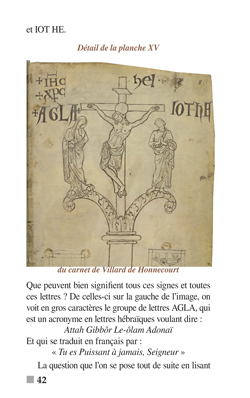 et IOT HE.
Détail de la planche XV
IHC hel
XPC
AGLA IOTHE
du carnet de Villard de Honnecourt
Que peuvent bien signifient tous ces signes et toutes
ces lettres ? De celles-ci sur la gauche de l'image, on
voit en gros caractères le groupe de lettres AGLA, qui
est un acronyme en lettres hébraïques voulant dire :
Attah Gibbôr Le-ôlam Adonaï
Et qui se traduit en français par :
« Tu es Puissant à jamais, Seigneur »
La question que l'on se pose tout de suite en lisant
42